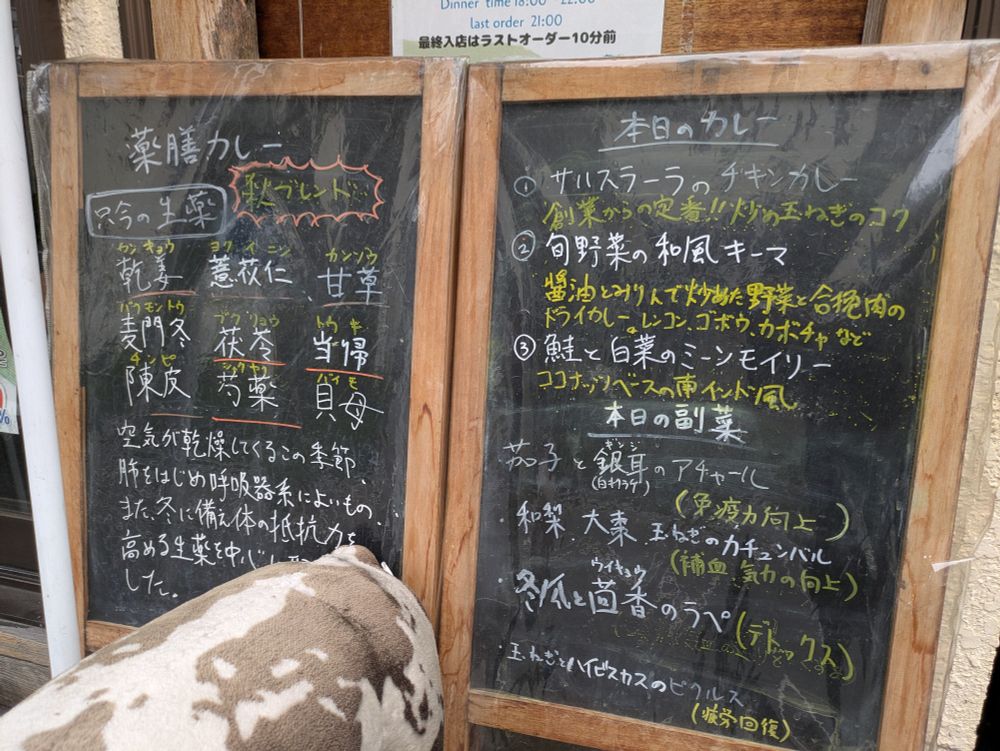 Dinner time 18:00 - 22:00
last order 21:00
最終入店はラストオーダー10分前
薬膳カレー
秋ブレンド
只今の生薬
カンキョウ ヨクイニン カンゾウ
乾姜 薏苡仁 甘草
バクモントウ ブクリョウ トウキ
麦門冬 茯苓 当帰
チンピ シャクヤク バイモ
陳皮 芍薬 貝母
空気が乾燥してくるこの季節、
肺をはじめ呼吸器系によいもの、
また、冬に備え体の抵抗力を
高める生薬を中心に
した。
本日のカレー
① サルスラーラのチキンカレー
創業からの定番!!炒め玉ねぎのコク
② 旬野菜の和風キーマ
醤油とみりんで炒めた野菜と合挽肉の
ドライカレー。レンコン、ゴボウ、カボチャなど
③ 鮭と白菜のミーンモイリー
ココナッツベースの南インド風
本日の副菜
ギンジ
茄子と銀耳のアチャール
(白キクラゲ)
(免疫力向上)
・和梨 大棗 玉ねぎのカチュンバル
(補血 気力の向上)
ウイキョウ
・冬瓜と茴香のラペ
(デトックス)
・玉ねぎとハイビスカスのピクルス
(疲労回復)
%